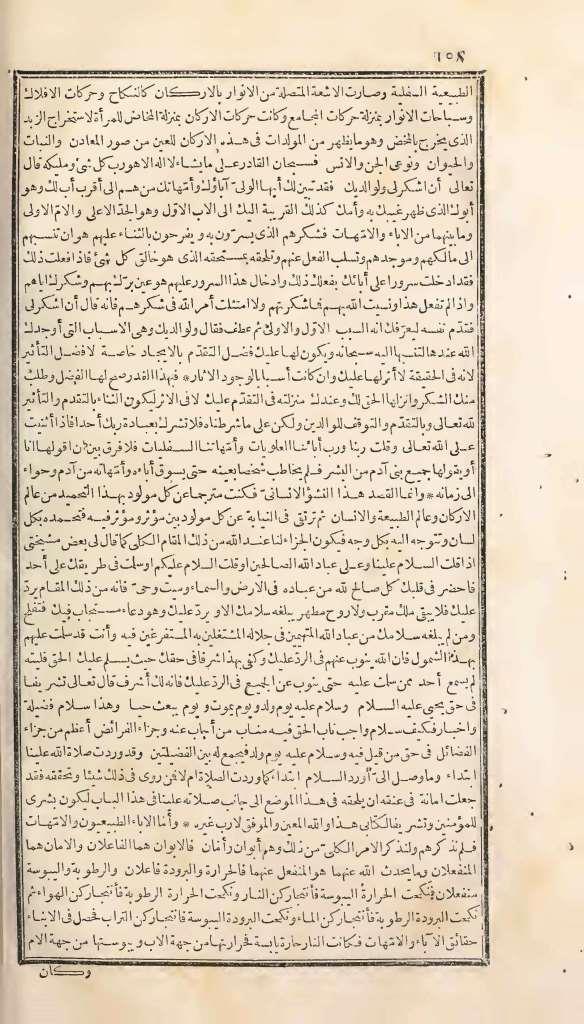 ٦٥٤
الطبيعية السفلية وصارت الاشعة المتصلة من الانوار بالاركان كالنكاح وحركات الافلاك
وسباحات الانوار بمنزلة حركات المجامع وكانت حركات الاركان بمنزلة المخاض للمرأة لاستخراج الزبد
الذى يخرج بالمخض وهو مايظهر من المولدات فى هذه الاركان للعين من صور المعادن والنبات
والحيوان ونوعى الجن والانس فسبحان القادر على مايشاء لا اله الا هو رب كل شئ ومليكه قال
تعالى أن اشكرلى ولوالديك فقد تبين لك أيها الولى آباؤك وأمهاتك من هم الى أقرب أب لك وهو
أبوك الذى ظهر عينك به وأمك كذلك القريبة اليك الى الاب الاول وهو الجد الاعلى والام الاولى
وما بينهما من الآباء والامهات فشكرهم الذى يسرّون به ويفرحون بالثناء عليهم هو ان تنسبهم
الى مالكهم وموجدهم وتسلب الفعل عنهم وتلحقه بمستحقه الذى هو خالق كل شئ فاذا فعلت ذلك
فقد ادخلت سرورا على أبائك بفعلك ذلك وادخال هذا السرور عليهم هو عين برّك بهم وشكرك اياهم
واذا لم تفعل هذا ونسيت الله بهم فما شكرتهم ولا امتثلت أمر الله فى شكرهم فانه قال أن اشكرلى
فقدّم نفسه ليعرّفك انه السبب الاوّل والاولى ثم عطف فقال ولوالديك وهى الاسباب التى أوجدك
الله عندها لتنسبها اليه سبحانه ويكون لها عليك فضل التقدّم بالايجاد خاصة لا فضل التأثير
لانه فى الحقيقة لا أثر لها عليك وان كانت أسبابا لوجود الآثار * فبهذا القدر صح لها الفضل وطلب
منك الشكر وانزلها الحق لك وعندك منزلته فى التقدّم عليك لا فى الاثر ليكون الثناء بالتقدم والتأثير
لله تعالى وبالتقدّم والتوقف للوالدين ولكن على ماشرطناه فلا تشرك بعبادة ربك أحدا فاذا أثنيت
على الله تعالى وقلت ربنا ورب آبائنا العلويات وأمهاتنا السفليات فلا فرق بين ان اقولها انا
أو يقولها جميع بنى آدم من البشر فلم يخاطب شخصا بعينه حتى يسوق أباءه وأمهاته من آدم وحواء
الى زمانه * وانما القصد هذا النشؤ الانسانى فكنت مترجما عن كل مولود بهذا التحميد من عالم
الاركان وعالم الطبيعة والانسان ثم ترتقى فى النيابة عن كل مولود بين مؤثر ومؤثر فيه فتحمده بكل
لسان وتتوجه اليه بكل وجه فيكون الجزاء لنا عند الله من ذلك المقام الكلى كما قال لى بعض مشيختى
اذا قلت السلام علينا وعلى عباد الله الصالحين او قلت السلام عليكم اوسلمت فى طريقك على أحد
فاحضر فى قلبك كل صالح لله من عباده فى الارض والسماء وميت وحىّ فانه من ذلك المقام يردّ
عليك فلا يبقى ملك مقرب ولا روح مطهر يبلغه سلامك الا ويردّ عليك وهو دعاء مستجاب فيك فتفلح
ومن لم يبلغه سلامك من عباد الله المهيمين فى جلاله المشتغلين به المستفرغين فيه وأنت قد سلمت عليهم
بهذا الشمول فان الله ينوب عنهم فى الردّ عليك وكفى بهذا شرفا فى حقك حيث يسلم عليك الحق فليته
لم يسمع أحد ممن سلمت عليه حتى ينوب عن الجميع فى الردّ عليك فانه لك أشرف قال تعالى تشريفا
فى حق يحيى عليه السلام وسلام عليه يوم ولد ويوم يموت ويوم يبعث حيا وهذا سلام فضيلة
واخبار فكيف سلام واجب ناب الحق فيه مناب من أجاب عنه وجزاء الفرائض أعظم من جزاء
الفضائل فى حق من قيل فيه وسلام عليه يوم ولد فيجمع له بين الفضيلتين وقد وردت صلاة الله علينا
ابتداء وما وصل الىّ أورد السلام ابتداء كما وردت الصلاة ام لا فمن روى فى ذلك شيئا وتحققه فقد
جعلت امانة فى عنقه ان يلحقه فى هذا الموضع الى جانب صلاته علينا فى هذا الباب ليكون بشرى
للمؤمنين وتشريفا لكتابى هذا والله المعين والموفق لا رب غيره * وأما الآباء الطبيعيون والامهات
فلم نذكرهم ولنذكر الامر الكلى من ذلك وهم أبوان وأمان فالابوان هما الفاعلان والامان هما
المنفعلان وما يحدث الله عنهما هو المنفعل عنهما فالحرارة والبرودة فاعلان والرطوبة واليبوسة
منفعلان فنكحت الحرارة اليبوسة فأنتجا ركن النار ونكحت الحرارة الرطوبة فأنتجا ركن الهواء ثم
نكحت البرودة الرطوبة فأنتجا ركن الماء ونكحت البرودة اليبوسة فأنتجا ركن التراب فحصل فى الابناء
حقائق الآباء والامهات فكانت النار حارة يابسة فحرارتها من جهة الاب ويبوستها من جهة الام
وكان